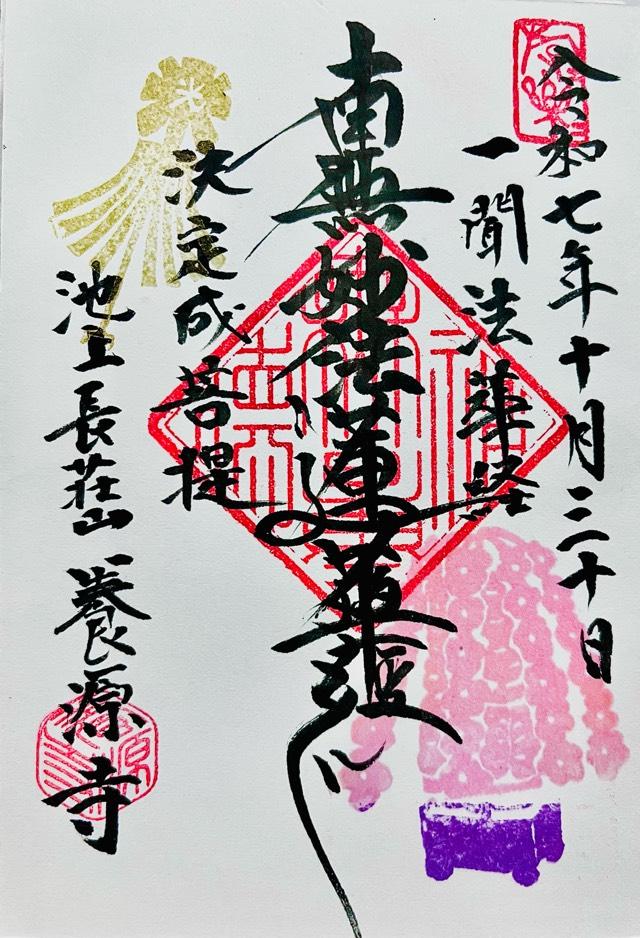 令和七年十月三十日
一聞法華経
南無妙法蓮華経
決定成菩提
池上長荘山養源寺